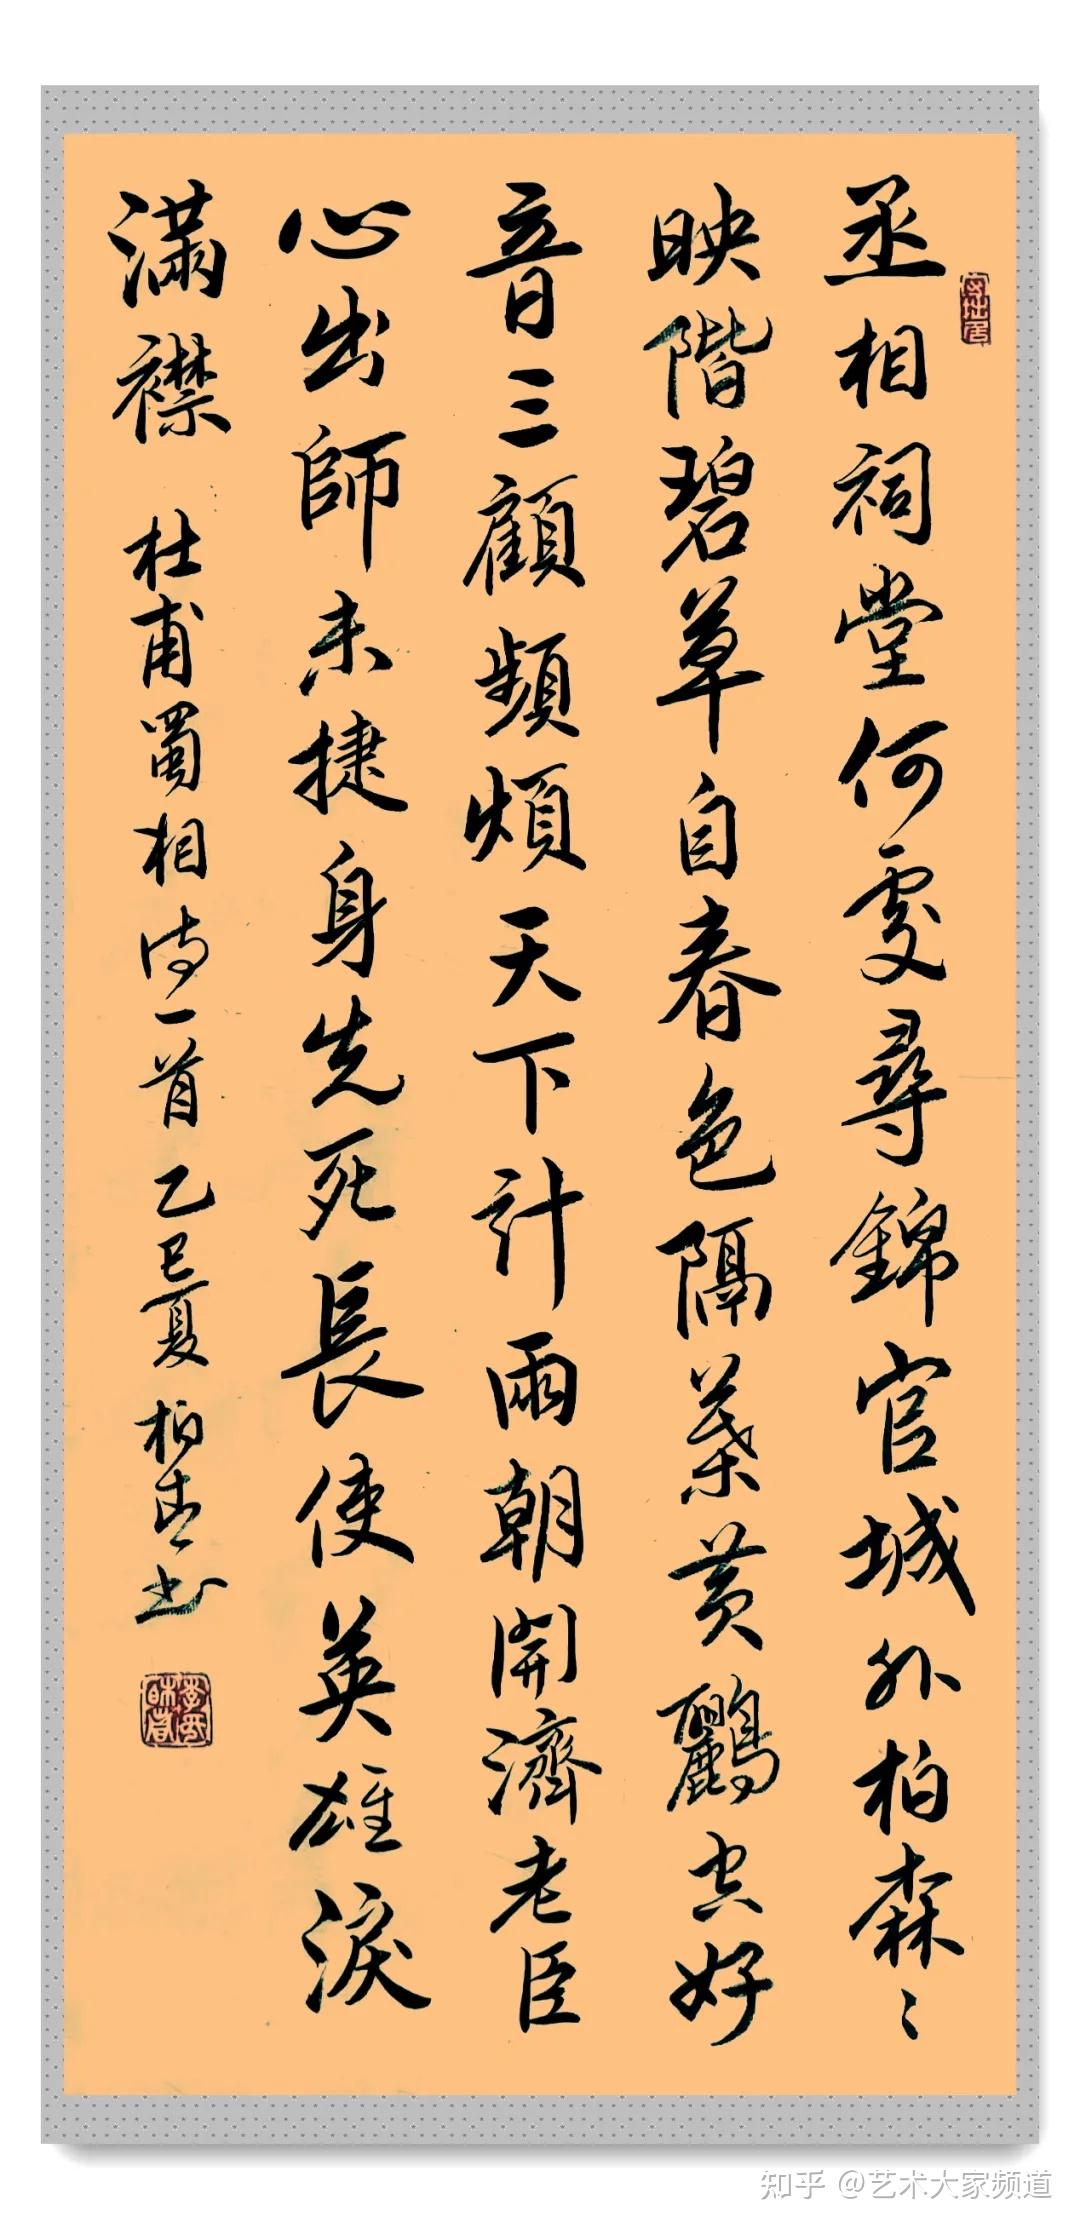 丞相祠堂何處尋錦官城外柏森〻
映階碧草自春色隔葉黃鸝空好
音三顧頻煩天下計兩朝開濟老臣
心出師未捷身先死長使英雄淚
滿襟
杜甫蜀相詩一首乙巳夏柏青书
知乎 @艺术大家频道